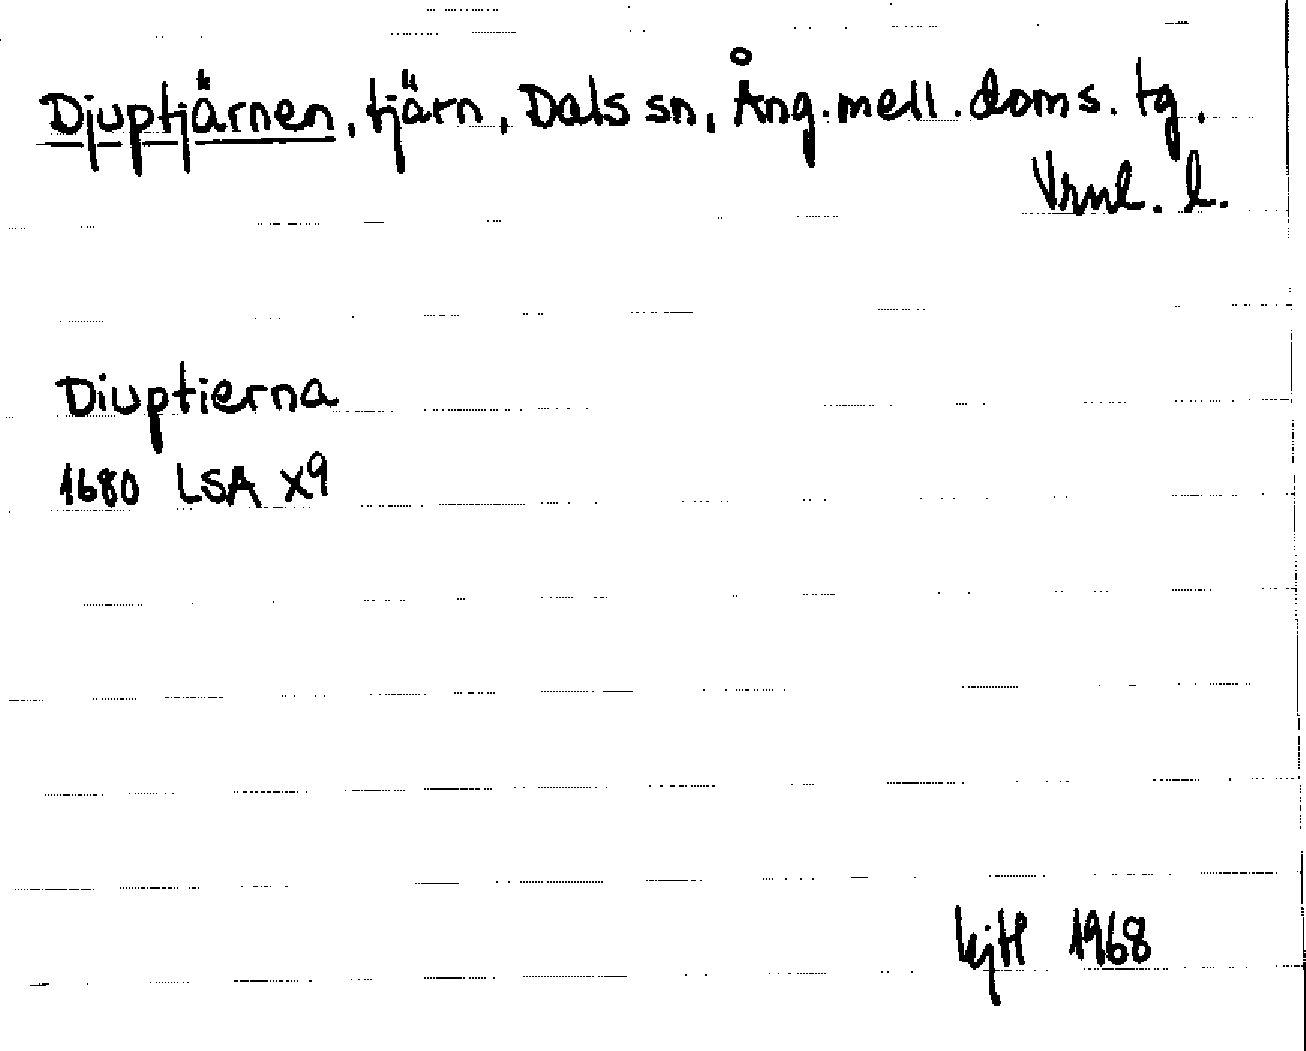 Djuptjärnen, tjärn, Dals sn, Ång.mell.doms.tg.
Vrnl. l.
Diuptierna
1680 LSA X9
1968